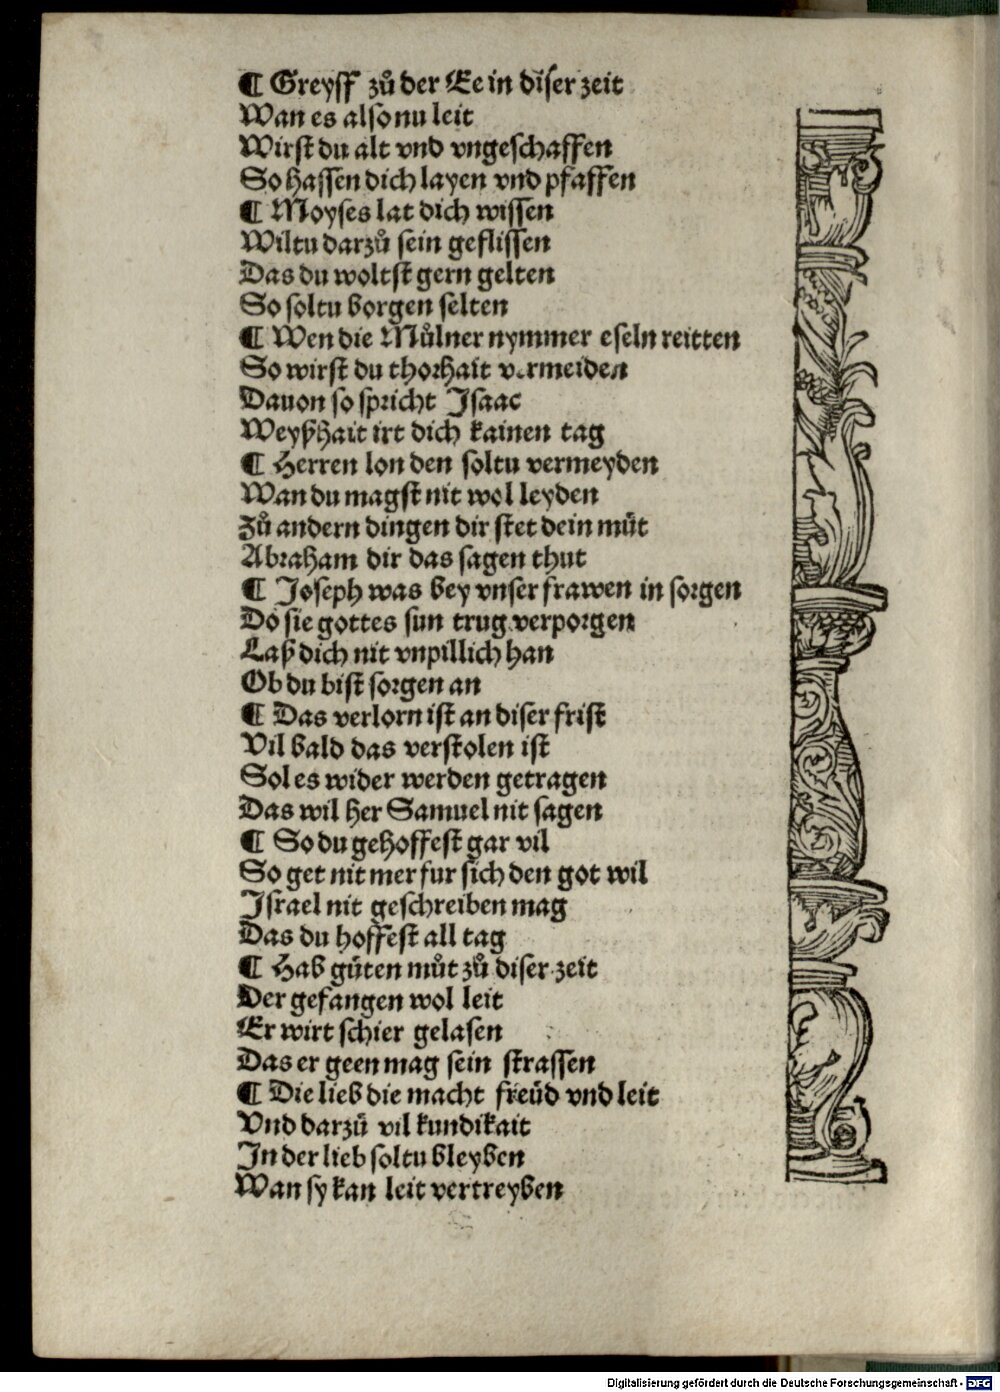 ¶ Greyff zů der Ee in diser zeit
Wan es also nu leit
Wirst du alt vnd vngeschaffen
So hassen dich layen vnd pfaffen
¶ Moyses lat dich wissen
Wiltu darzů sein geflissen
Das du woltst gern gelten
So soltu borgen selten
¶ Wen die Můlner nymmer eseln reitten
So wirst du thorhait vermeiden
Dauon so spricht Isaac
Weyßhait irt dich kainen tag
¶ Herren lon den soltu vermeyden
Wan du magst nit wol leyden
Zů andern dingen dir stet dein můt
Abraham dir das sagen thut
¶ Joseph was bey vnser frawen in sorgen
Do sie gottes sun trug verporgen
Laß dich nit vnpillich han
Ob du bist sorgen an
¶ Das verlorn ist an diser frist
Vil bald das verstolen ist
Sol es wider werden getragen
Das wil her Samuel nit sagen
¶ So du gehoffest gar vil
So get nit mer fur sich den got wil
Israel nit geschreiben mag
Das du hoffest all tag
¶ Hab gůten můt zů diser zeit
Der gefangen wol leit
Er wirt schier gelasen
Das er geen mag sein strassen
¶ Die lieb die macht freüd vnd leit
Vnd darzů vil kundikait
In der lieb soltu bleyben
Wan sy kan leit vertreyben
Digitalisierung gefördert durch die Deutsche Forschungsgemeinschaft - DFG